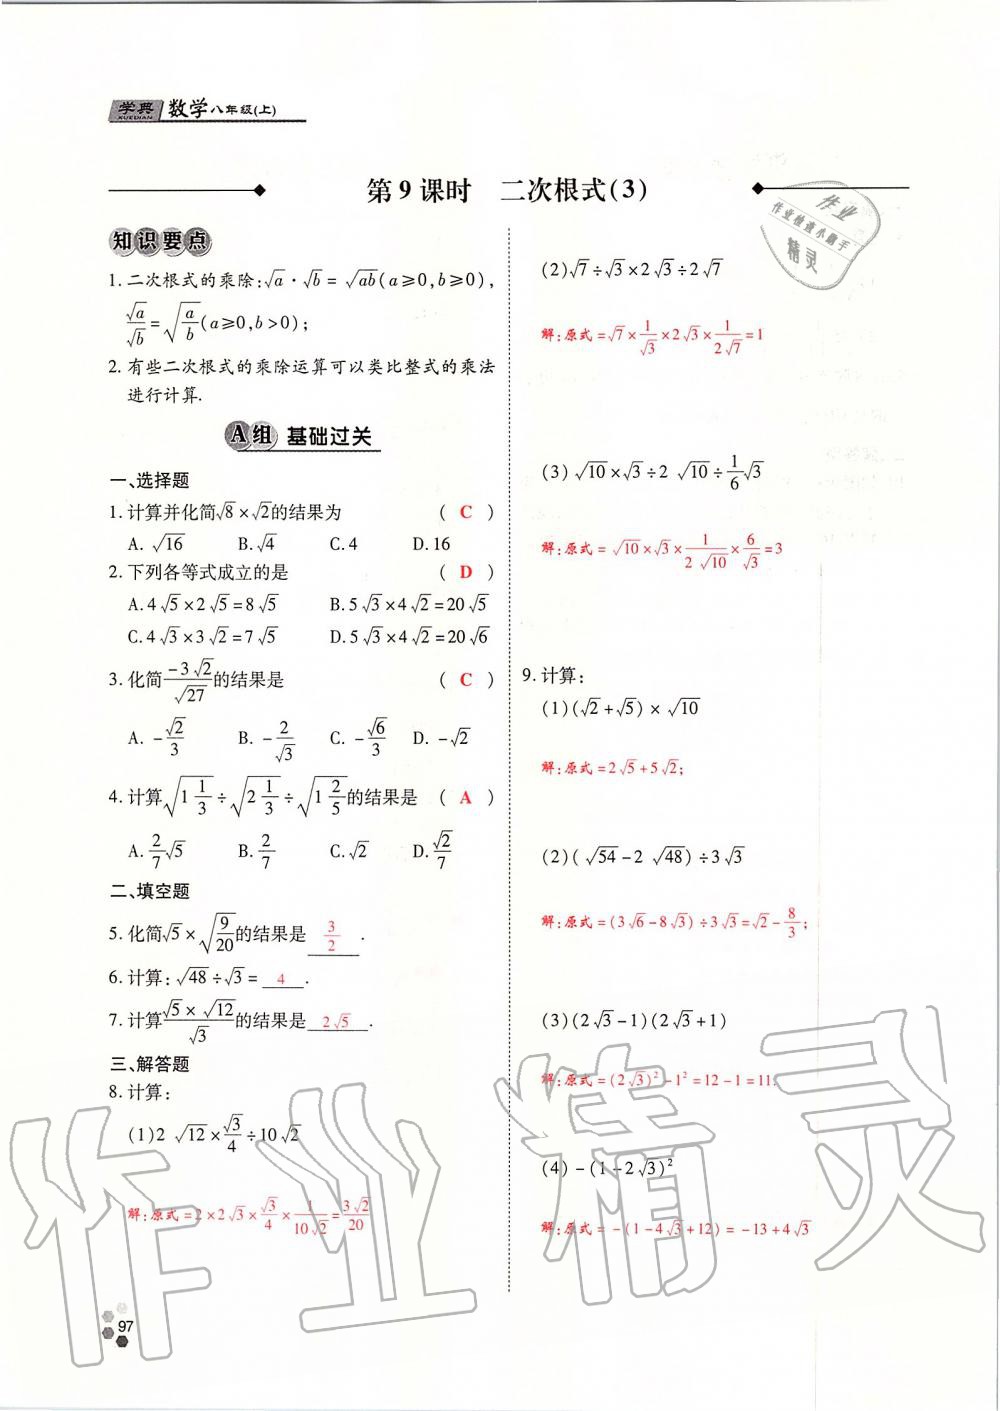 学典 XUEDIAN 数学八年级(上)
第9课时 二次根式(3)
知识要点
1. 二次根式的乘除:√a · √b = √ab(a≥0,b≥0),
√a/√b = √(a/b)(a≥0,b>0);
2. 有些二次根式的乘除运算可以类比整式的乘法
进行计算.
A组 基础过关
一、选择题
1. 计算并化简√8×√2的结果为 ( C )
A. √16 B. √4 C. 4 D. 16
2. 下列各等式成立的是 ( D )
A. 4√5×2√5=8√5 B. 5√3×4√2=20√5
C. 4√3×3√2=7√5 D. 5√3×4√2=20√6
3. 化简(-3√2)/√27的结果是 ( C )
A. -√2/3 B. -2/√3 C. -√6/3 D. -√2
4. 计算√(1 1/3)÷√(2 1/3)÷√(1 2/5)的结果是 ( A )
A. 2/7√5 B. 2/7 C. √2 D. √2/7
二、填空题
5. 化简√5×√(9/20)的结果是 3/2 .
6. 计算:√48÷√3= 4 .
7. 计算(√5×√12)/√3的结果是 2√5 .
三、解答题
8. 计算:
(1)2√12×√3/4÷10√2
解:原式=2×2√3×√3/4×1/(10√2)=3√2/20
(2)√7÷√3×2√3÷2√7
解:原式=√7×1/√3×2√3×1/(2√7)=1
(3)√10×√3÷2√10÷1/6√3
解:原式=√10×√3×1/(2√10)×6/√3=3
9. 计算:
(1)(√2+√5)×√10
解:原式=2√5+5√2;
(2)(√54-2√48)÷3√3
解:原式=(3√6-8√3)÷3√3=√2-8/3;
(3)(2√3-1)(2√3+1)
解:原式=(2√3)²-1²=12-1=11.
(4)-(1-2√3)²
解:原式=-(1-4√3+12)=-13+4√3
97
作业
作业检查小助手
精灵
作业精灵